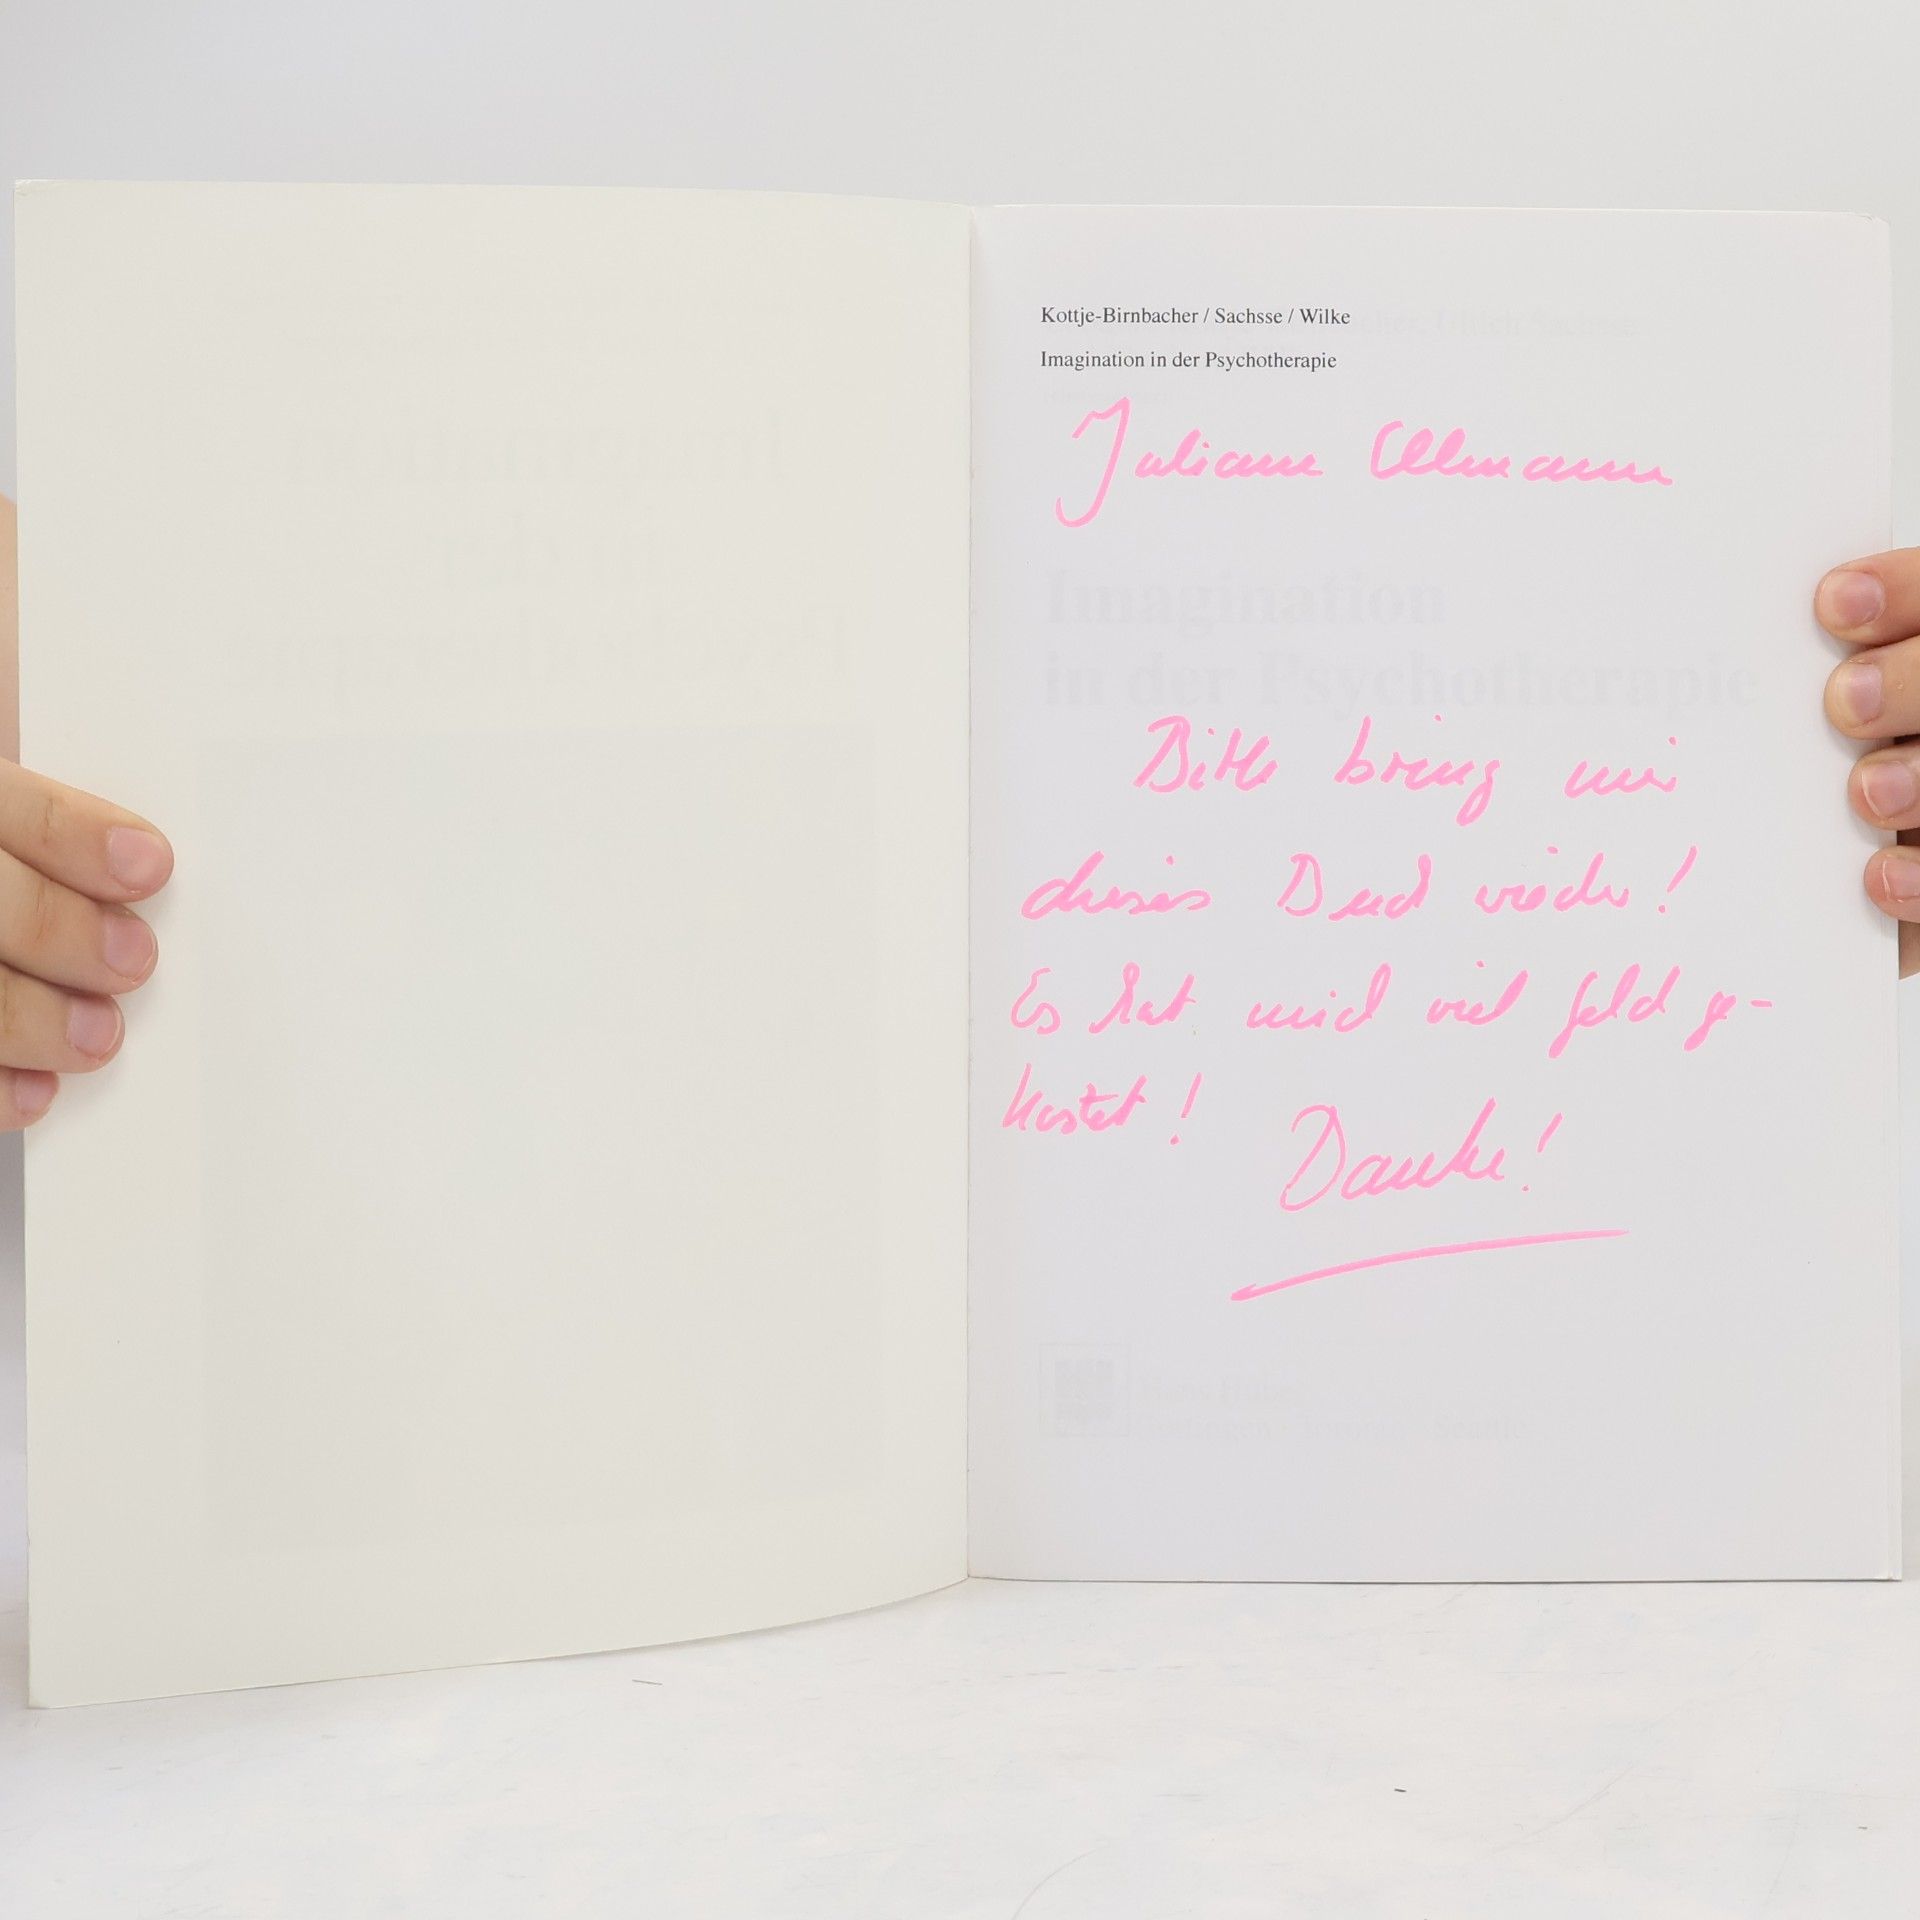 Kottje-Birnbacher / Sachsse / Wilke
Imagination in der Psychotherapie
Juliane Ullmann
Imagination
in der Psychotherapie
Bitte bring mir
dieses Buch wieder!
Es hat mich viel Geld ge-
kostet!
Danke!